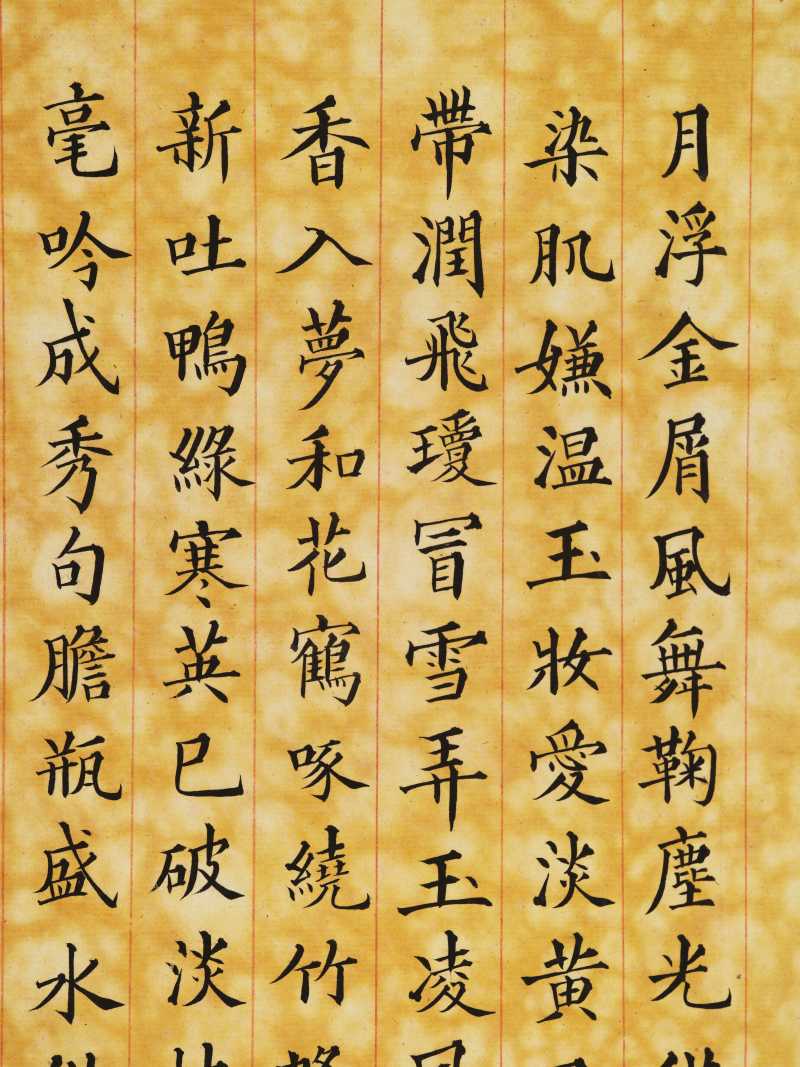 月浮金屑風舞鞠塵光
染肌嫌温玉妝愛淡黃
帶潤飛瓊冒雪弄玉凌風
香入夢和花鶴啄繞竹
新吐鴨綠寒英已破淡
毫吟成秀句膽瓶盛水